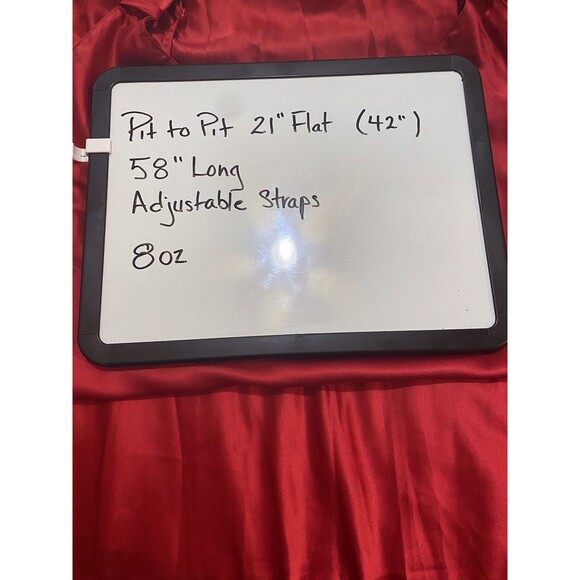 Pit to Pit 21" Flat (42")
58" Long
Adjustable Straps
8oz